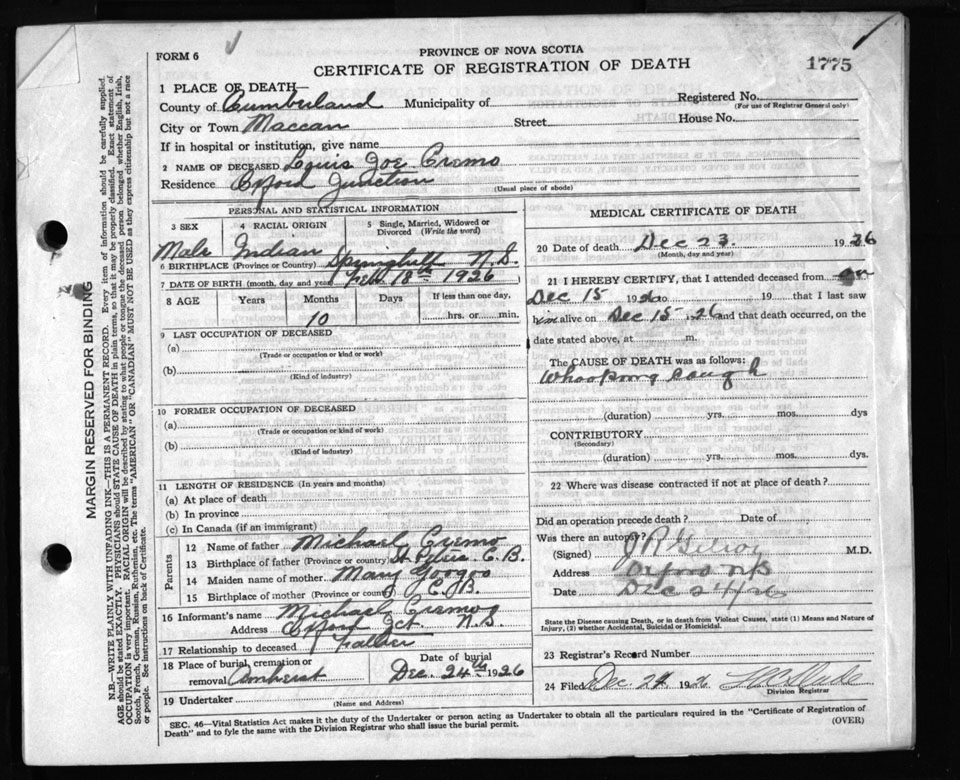 FORM 6
PROVINCE OF NOVA SCOTIA
CERTIFICATE OF REGISTRATION OF DEATH
1775
1 PLACE OF DEATH—
County of Cumberland Municipality of
Registered No.
(For use of Registrar General only)
City or Town Maccan Street House No.
If in hospital or institution, give name
2 NAME OF DECEASED Louis Joe Cremo
Residence Oxford Junction
(Usual place of abode)
PERSONAL AND STATISTICAL INFORMATION
3 SEX
4 RACIAL ORIGIN
5 Single, Married, Widowed or Divorced (Write the word)
Male Indian
6 BIRTHPLACE (Province or Country) Springhill N.S.
7 DATE OF BIRTH (month, day and year) Feb. 18th 1926
8 AGE Years Months Days If less than one day,
10 hrs. or min.
9 LAST OCCUPATION OF DECEASED
(a)
(Trade or occupation or kind or work)
(b)
(Kind of industry)
10 FORMER OCCUPATION OF DECEASED
(a)
(Trade or occupation or kind of work)
(b)
(Kind of industry)
11 LENGTH OF RESIDENCE (In years and months)
(a) At place of death
(b) In province
(c) In Canada (if an immigrant)
Parents
12 Name of father Michael Cremo
13 Birthplace of father (Province or country) St. Peters C.B.
14 Maiden name of mother Mary Googoo
15 Birthplace of mother (Province or country) C.B.
16 Informant's name Michael Cremo
Address Oxford Jct. N.S.
17 Relationship to deceased Father
18 Place of burial, cremation or removal Amherst
Date of burial
Dec. 24th 1926
19 Undertaker
(Name and Address)
MEDICAL CERTIFICATE OF DEATH
20 Date of death Dec 23. 1926
(Month, day and year)
21 I HEREBY CERTIFY, that I attended deceased from on
Dec 15 1926 to 19 that I last saw
him alive on Dec 15 1926 and that death occurred, on the
date stated above, at m.
The CAUSE OF DEATH was as follows:
Whooping cough
(duration) yrs. mos. dys
CONTRIBUTORY
(Secondary)
(duration) yrs. mos. dys.
22 Where was disease contracted if not at place of death?
Did an operation precede death? Date of
Was there an autopsy?
(Signed) M.D.
Address
Date Dec 24/26
State the Disease causing Death, or in death from Violent Causes, state (1) Means and Nature of Injury, (2) whether Accidental, Suicidal or Homicidal.
23 Registrar's Record Number
24 Filed Dec. 24 1926
Division Registrar
SEC. 46—Vital Statistics Act makes it the duty of the Undertaker or person acting as Undertaker to obtain all the particulars required in the "Certificate of Registration of
Death" and to fyle the same with the Division Registrar who shall issue the burial permit.
(OVER)
MARGIN RESERVED FOR BINDING
N.B.—WRITE PLAINLY WITH UNFADING INK—THIS IS A PERMANENT RECORD. Every item of information should be carefully supplied.
AGE should be stated EXACTLY. PHYSICIANS should STATE CAUSE OF DEATH in plain terms, so that it may be properly classified. Exact statement of
OCCUPATION is very important. RACIAL ORIGIN will be described by stating to what people or tongue the deceased person belonged whether English, Irish,
Scotch, French, German, Russian, Ruthenian, etc. The terms "AMERICAN" OR "CANADIAN" MUST NOT BE USED as they express citizenship but not a race
or people. See instructions on back of Certificate.